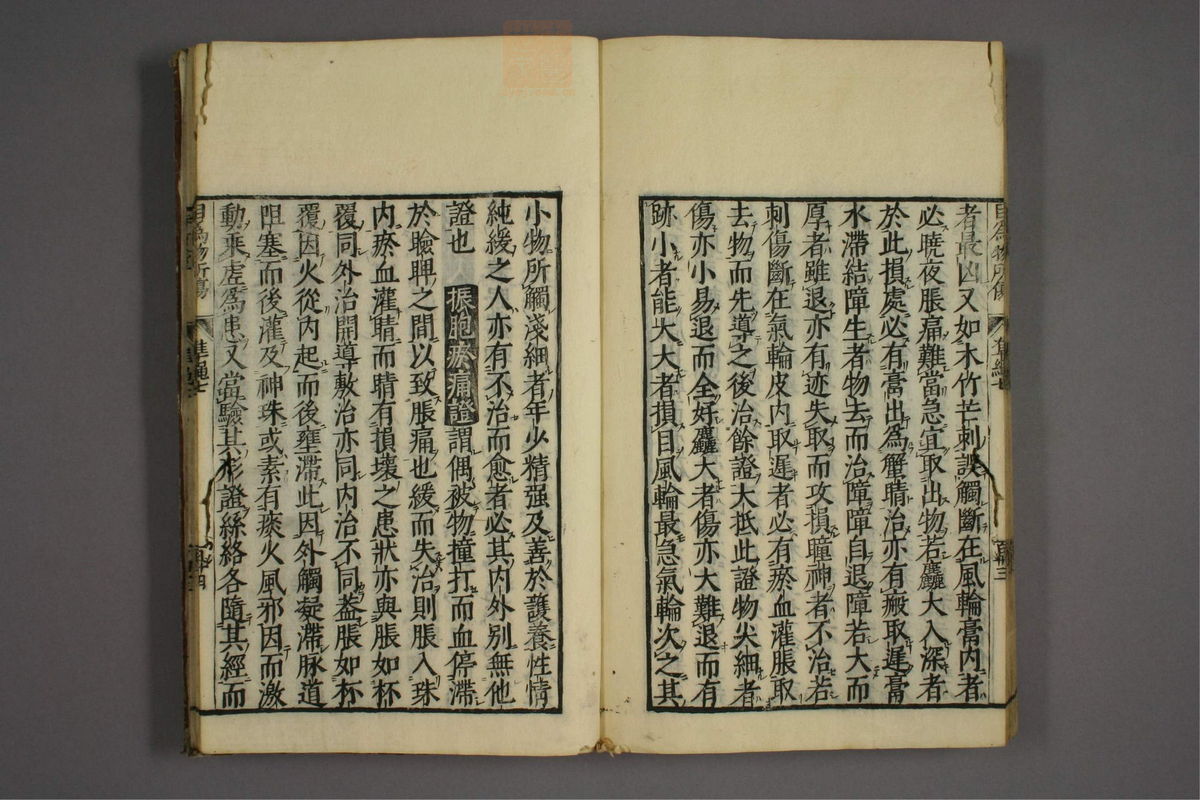 者最凶又如木竹芒刺誤觸斷在風輪膏內者
必曉夜脹痛難當急宜取出物若麤大入深者
於此損處必有膏出爲蟹睛治亦有瘢取遲膏
水滯結障生者物去而治障障自退障若大而
厚者雖退亦有迹失取而攻損瞳神者不治若
刺傷斷在氣輪皮內取遲者必有瘀血灌脹取
去物而先導之後治餘證大抵此證物尖細者
傷亦小易退而全好麤大者傷亦大難退而有
跡小者能大大者損目風輪最急氣輪次之其
目爲物所傷
小物所觸淺細者年少精强及善於護養性情
純緩之人亦有不治而愈者必其內外別無他
證也 振胞瘀痛證 謂偶被物撞打而血停滯
於瞼睥之間以致脹痛也緩而失治則脹入珠
內瘀血灌睛而睛有損壞之患狀亦與脹如杯
覆同外治開導敷治亦同內治不同葢脹如杯
覆因火從內起而後壅滯此因外觸凝滯脉道
阻塞而後灌及神珠或素有痰火風邪因而激
動乘虛爲患又當驗其形證絲絡各隨其經而
目爲物所傷